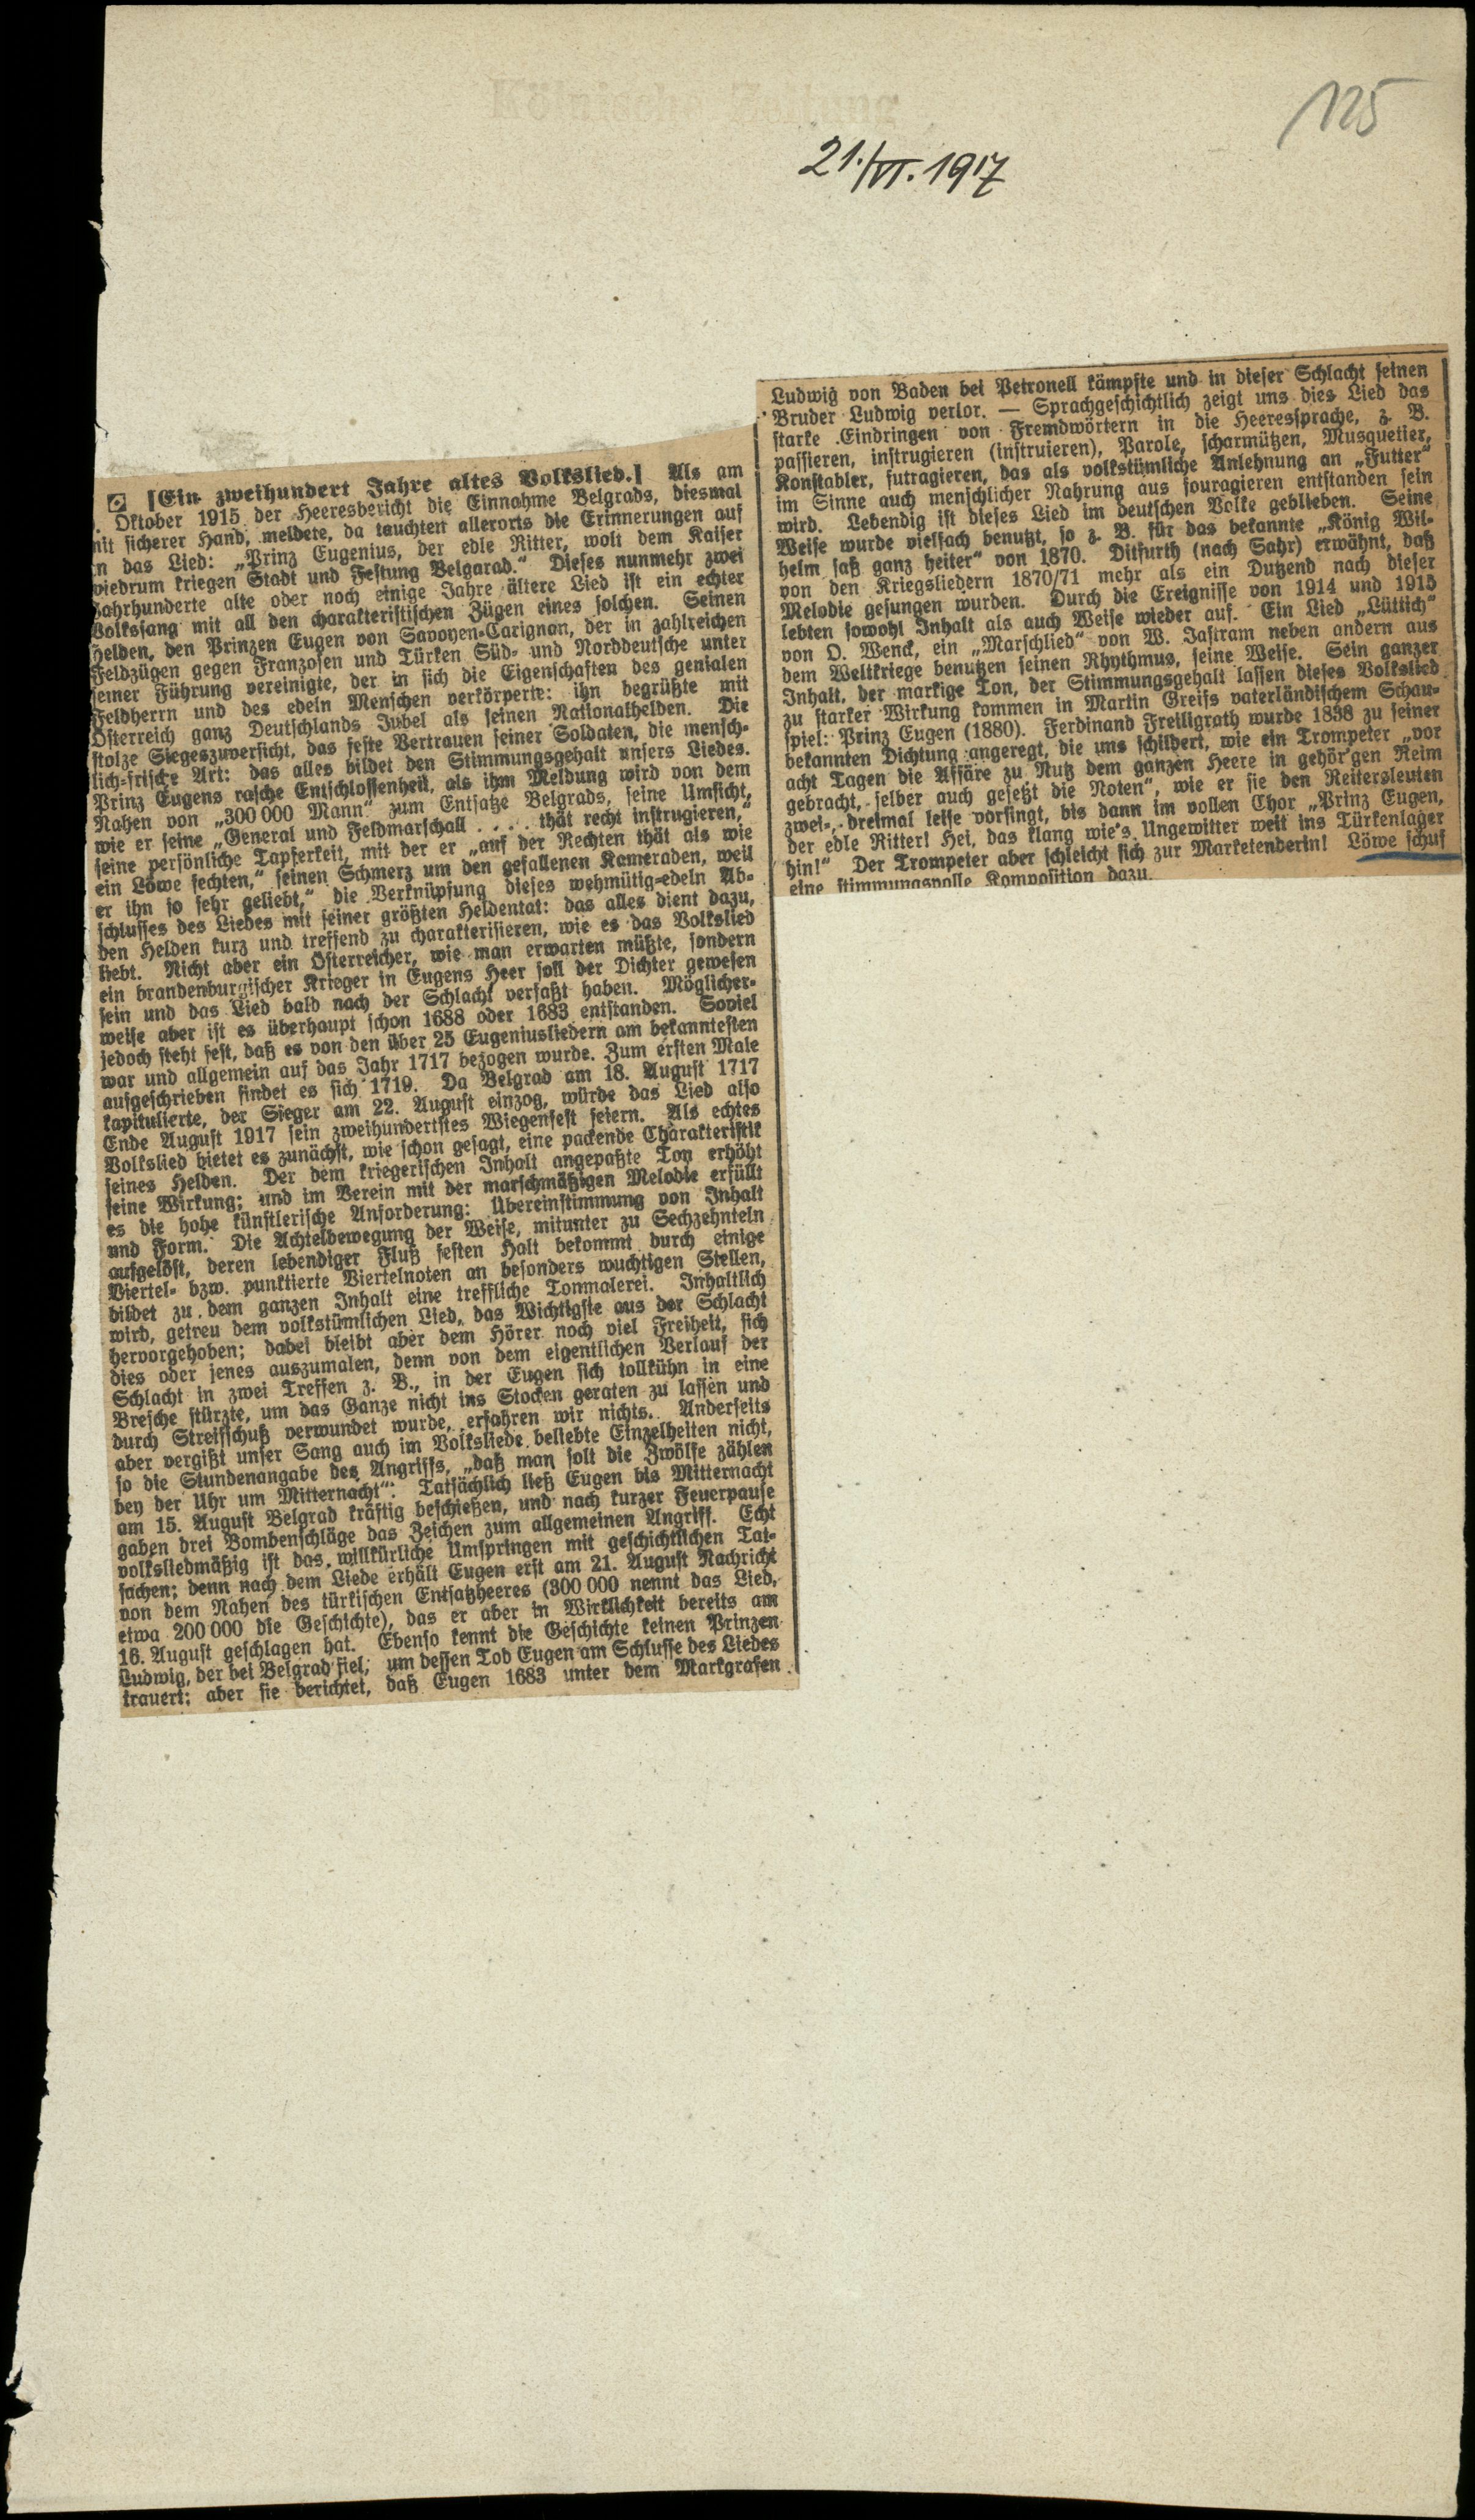 Kölnische Zeitung
125
21./VI. 1917
[Ein zweihundert Jahre altes Volkslied.] Als am
. Oktober 1915 der Heeresbericht die Einnahme Belgrads, diesmal
mit sicherer Hand, meldete, da tauchten allerorts die Erinnerungen auf
an das Lied: „Prinz Eugenius, der edle Ritter, wolt dem Kaiser
wiedrum kriegen Stadt und Festung Belgarad.“ Dieses nunmehr zwei
Jahrhunderte alte oder noch einige Jahre ältere Lied ist ein echter
Volkssang mit all den charakteristischen Zügen eines solchen. Seinen
Helden, den Prinzen Eugen von Savoyen-Carignan, der in zahlreichen
Feldzügen gegen Franzosen und Türken Süd- und Norddeutsche unter
seiner Führung vereinigte, der in sich die Eigenschaften des genialen
Feldherrn und des edeln Menschen verkörperte: ihn begrüßte mit
Österreich ganz Deutschlands Jubel als seinen Nationalhelden. Die
stolze Siegeszuversicht, das feste Vertrauen seiner Soldaten, die mensch-
lich-frische Art: das alles bildet den Stimmungsgehalt unsers Liedes.
Prinz Eugens rasche Entschlossenheit, als ihm Meldung wird von dem
Nahen von „300 000 Mann“ zum Entsatze Belgrads, seine Umsicht,
wie er seine „General und Feldmarschall . . . . thät recht instrugieren,“
seine persönliche Tapferkeit, mit der er „auf der Rechten thät als wie
ein Löwe fechten,“ seinen Schmerz um den gefallenen Kameraden, weil
er ihn so sehr geliebt,“ die Verknüpfung dieses wehmütig-edeln Ab-
schlusses des Liedes mit seiner größten Heldentat: das alles dient dazu,
den Helden kurz und treffend zu charakterisieren, wie es das Volkslied
liebt. Nicht aber ein Österreicher, wie man erwarten müßte, sondern
ein brandenburgischer Krieger in Eugens Heer soll der Dichter gewesen
sein und das Lied bald nach der Schlacht verfaßt haben. Möglicher-
weise aber ist es überhaupt schon 1688 oder 1683 entstanden. Soviel
jedoch steht fest, daß es von den über 25 Eugeniusliedern am bekanntesten
war und allgemein auf das Jahr 1717 bezogen wurde. Zum ersten Male
aufgeschrieben findet es sich 1719. Da Belgrad am 18. August 1717
kapitulierte, der Sieger am 22. August einzog, würde das Lied also
Ende August 1917 sein zweihundertstes Wiegenfest feiern. Als echtes
Volkslied bietet es zunächst, wie schon gesagt, eine packende Charakteristik
seines Helden. Der dem kriegerischen Inhalt angepaßte Ton erhöht
seine Wirkung; und im Verein mit der marschmäßigen Melodie erfüllt
es die hohe künstlerische Anforderung: Übereinstimmung von Inhalt
und Form. Die Achtelbewegung der Weise, mitunter zu Sechzehnteln
aufgelöst, deren lebendiger Fluß festen Halt bekommt durch einige
Viertel- bzw. punktierte Viertelnoten an besonders wuchtigen Stellen,
bildet zu dem ganzen Inhalt eine treffliche Tonmalerei. Inhaltlich
wird, getreu dem volkstümlichen Lied, das Wichtigste aus der Schlacht
hervorgehoben; dabei bleibt aber dem Hörer noch viel Freiheit, sich
dies oder jenes auszumalen, denn von dem eigentlichen Verlauf der
Schlacht in zwei Treffen z. B., in der Eugen sich tollkühn in eine
Bresche stürzte, um das Ganze nicht ins Stocken geraten zu lassen und
durch Streifschuß verwundet wurde, erfahren wir nichts. Anderseits
aber vergißt unser Sang auch im Volksliede beliebte Einzelheiten nicht,
so die Stundenangabe des Angriffs, „daß man solt die Zwölfe zählen
bey der Uhr um Mitternacht“. Tatsächlich ließ Eugen bis Mitternacht
am 15. August Belgrad kräftig beschießen, und nach kurzer Feuerpause
gaben drei Bombenschläge das Zeichen zum allgemeinen Angriff. Echt
volksliedmäßig ist das willkürliche Umspringen mit geschichtlichen Tat-
sachen; denn nach dem Liede erhält Eugen erst am 21. August Nachricht
von dem Nahen des türkischen Entsatzheeres (300 000 nennt das Lied,
etwa 200 000 die Geschichte), das er aber in Wirklichkeit bereits am
16. August geschlagen hat. Ebenso kennt die Geschichte keinen Prinzen
Ludwig, der bei Belgrad fiel, um dessen Tod Eugen am Schlusse des Liedes
trauert; aber sie berichtet, daß Eugen 1683 unter dem Markgrafen
Ludwig von Baden bei Petronell kämpfte und in dieser Schlacht seinen
Bruder Ludwig verlor. — Sprachgeschichtlich zeigt uns dies Lied das
starke Eindringen von Fremdwörtern in die Heeressprache, z. B.
passieren, instrugieren (instruieren), Parole, scharmützen, Musquetier,
Konstabler, futragieren, das als volkstümliche Anlehnung an „Futter“
im Sinne auch menschlicher Nahrung aus fouragieren entstanden sein
wird. Lebendig ist dieses Lied im deutschen Volke geblieben. Seine
Weise wurde vielfach benutzt, so z. B. für das bekannte „König Wil-
helm saß ganz heiter“ von 1870. Ditfurth (nach Sahr) erwähnt, daß
von den Kriegsliedern 1870/71 mehr als ein Dutzend nach dieser
Melodie gesungen wurden. Durch die Ereignisse von 1914 und 1915
lebten sowohl Inhalt als auch Weise wieder auf. Ein Lied „Lüttich“
von O. Wenck, ein „Marschlied“ von W. Jastram neben andern aus
dem Weltkriege benutzen seinen Rhythmus, seine Weise. Sein ganzer
Inhalt, der markige Ton, der Stimmungsgehalt lassen dieses Volkslied
zu starker Wirkung kommen in Martin Greifs vaterländischem Schau-
spiel: Prinz Eugen (1880). Ferdinand Freiligrath wurde 1838 zu seiner
bekannten Dichtung angeregt, die uns schildert, wie ein Trompeter „vor
acht Tagen die Affäre zu Nutz dem ganzen Heere in gehör'gen Reim
gebracht, selber auch gesetzt die Noten“, wie er sie den Reitersleuten
zwei-, dreimal leise vorsingt, bis dann im vollen Chor „Prinz Eugen,
der edle Ritter! Hei, das klang wie's Ungewitter weit ins Türkenlager
hin!“ Der Trompeter aber schleicht sich zur Marketenderin! Löwe schuf
eine stimmungsvolle Komposition dazu.